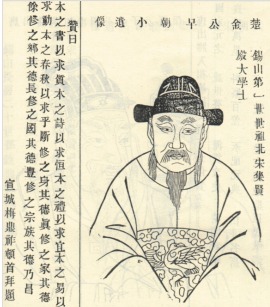 楚金公早朝小遺像
錫山第一世世祖北宋集賢
殿大學士
贊曰
本之書以求質本之詩以求恒本之禮以求宜本之易以
求動本之春秋以求乎斷修之身其德眞修之家其德
餘修之鄉其德長修之國其德豐修之宗族其德乃昌
宣城梅鼎祚頓首拜題